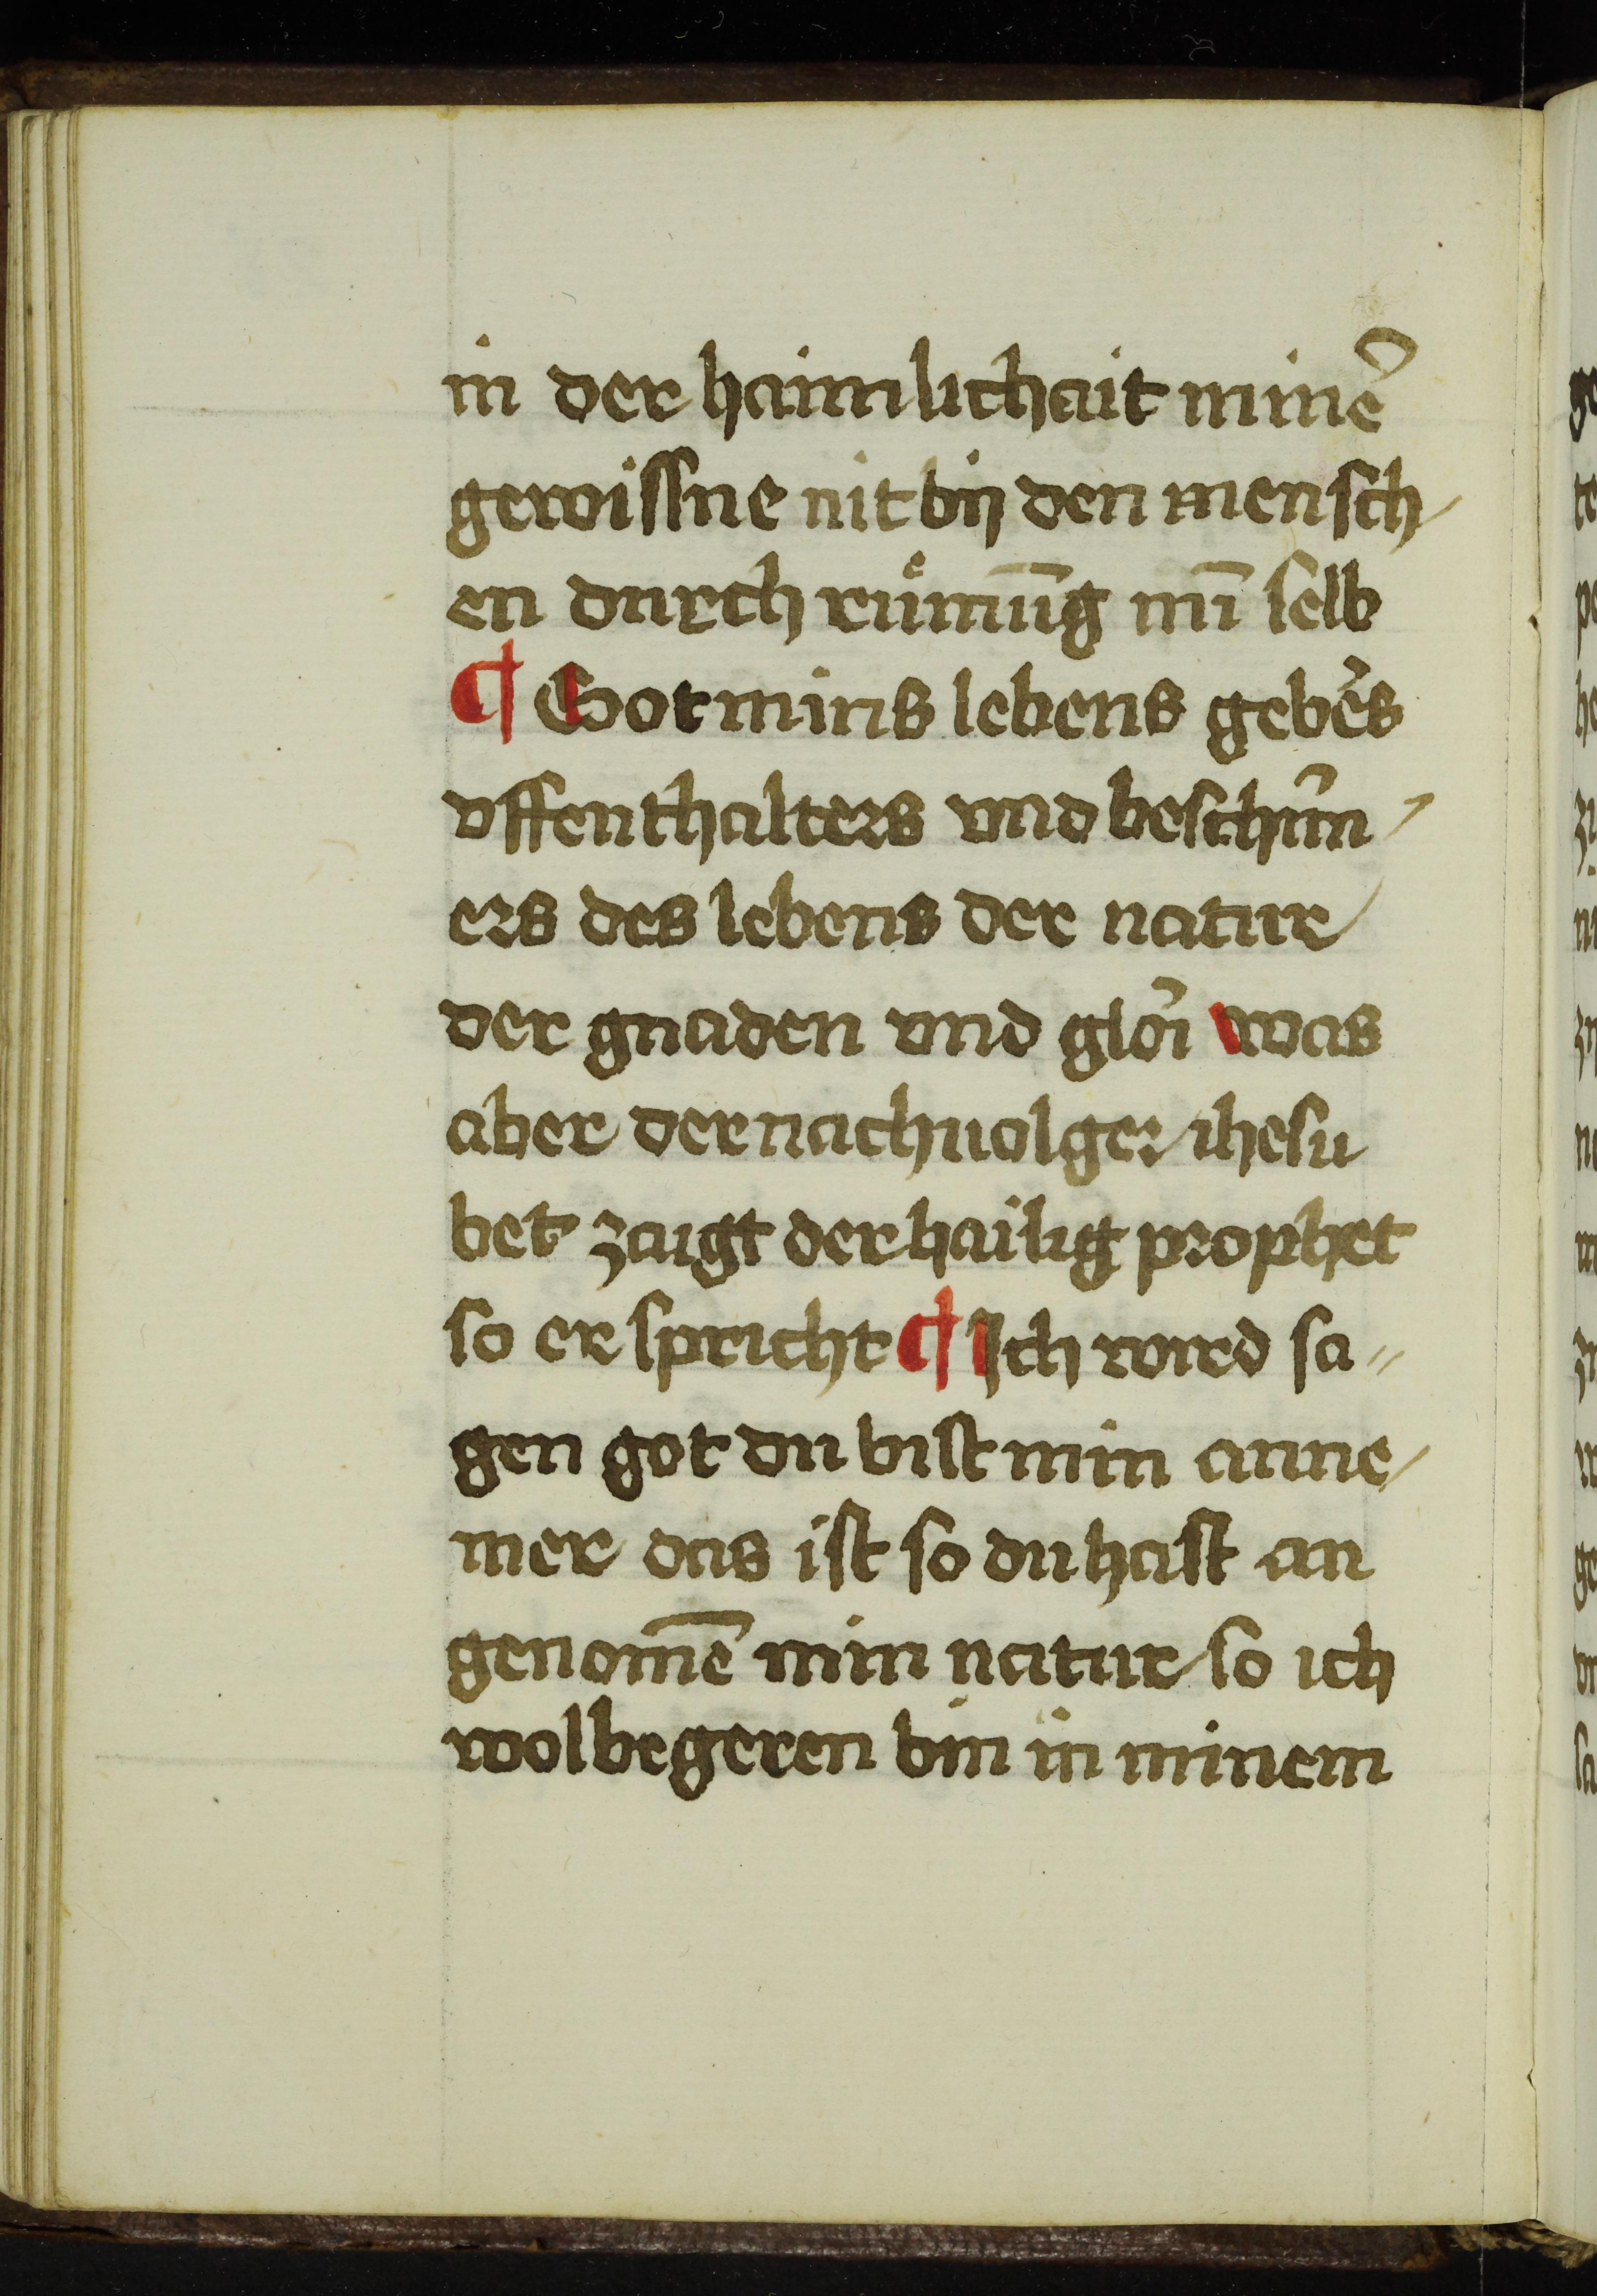 in der haimlichait minẽ
gewissne nit bij den mensch
en durch ruͤmūg mī selb
¶ Got mins lebens geb̾s
vffenthalters vnd beschir̃m
ers des lebens der natur
der gnaden vnd glor̾i was
aber der nachuolger ihesu
bet zaigt der hailig prophet
so er spricht ¶ Ich wird sa⸗
gen got du bist min anne
mer das ist so du hast an
genom̄ē min natur so ich
wolbegeren bin in minem